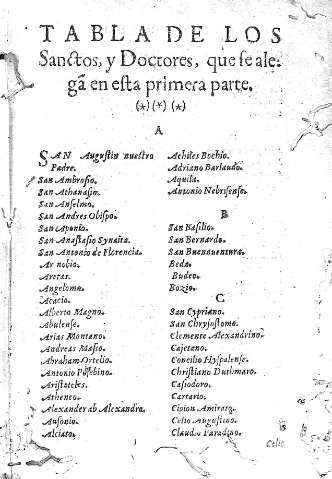 TABLA DE LOS
Sanctos, y Doctores, que se ale-
gã en esta primera parte.
(*)(*)(*)
A
SAN Augustin nuestro
Padre.
San Ambrosio.
San Athanasio.
San Anselmo.
San Andres Obispo.
San Aponio.
San Anastasio Synaita.
San Antonio de Florencia.
Arnobio.
Aretas.
Angelomo.
Acacio.
Alberto Magno.
Abulense.
Arias Montano.
Andreas Masio.
Abraham Ortelio.
Antonio
Aristoteles.
Atheneo.
Alexander ab Alexandro.
Ausonio.
Alciato.
Achiles Bochio.
Adriano Barlando.
Aquila.
Antonio Nebrisense.
B
San Basilio.
San Bernardo.
San Buenaventura.
Beda.
Budeo.
Bozio.
C
San Cypriano.
San Chrysostomo.
Clemente Alexandrino.
Cajetano.
Concilio Hyspalense.
Christiano Duthmaro.
Casiodoro.
Cartario.
Cipion Amirato.
Celio Augustino.
Claudio Paradino.
Celio